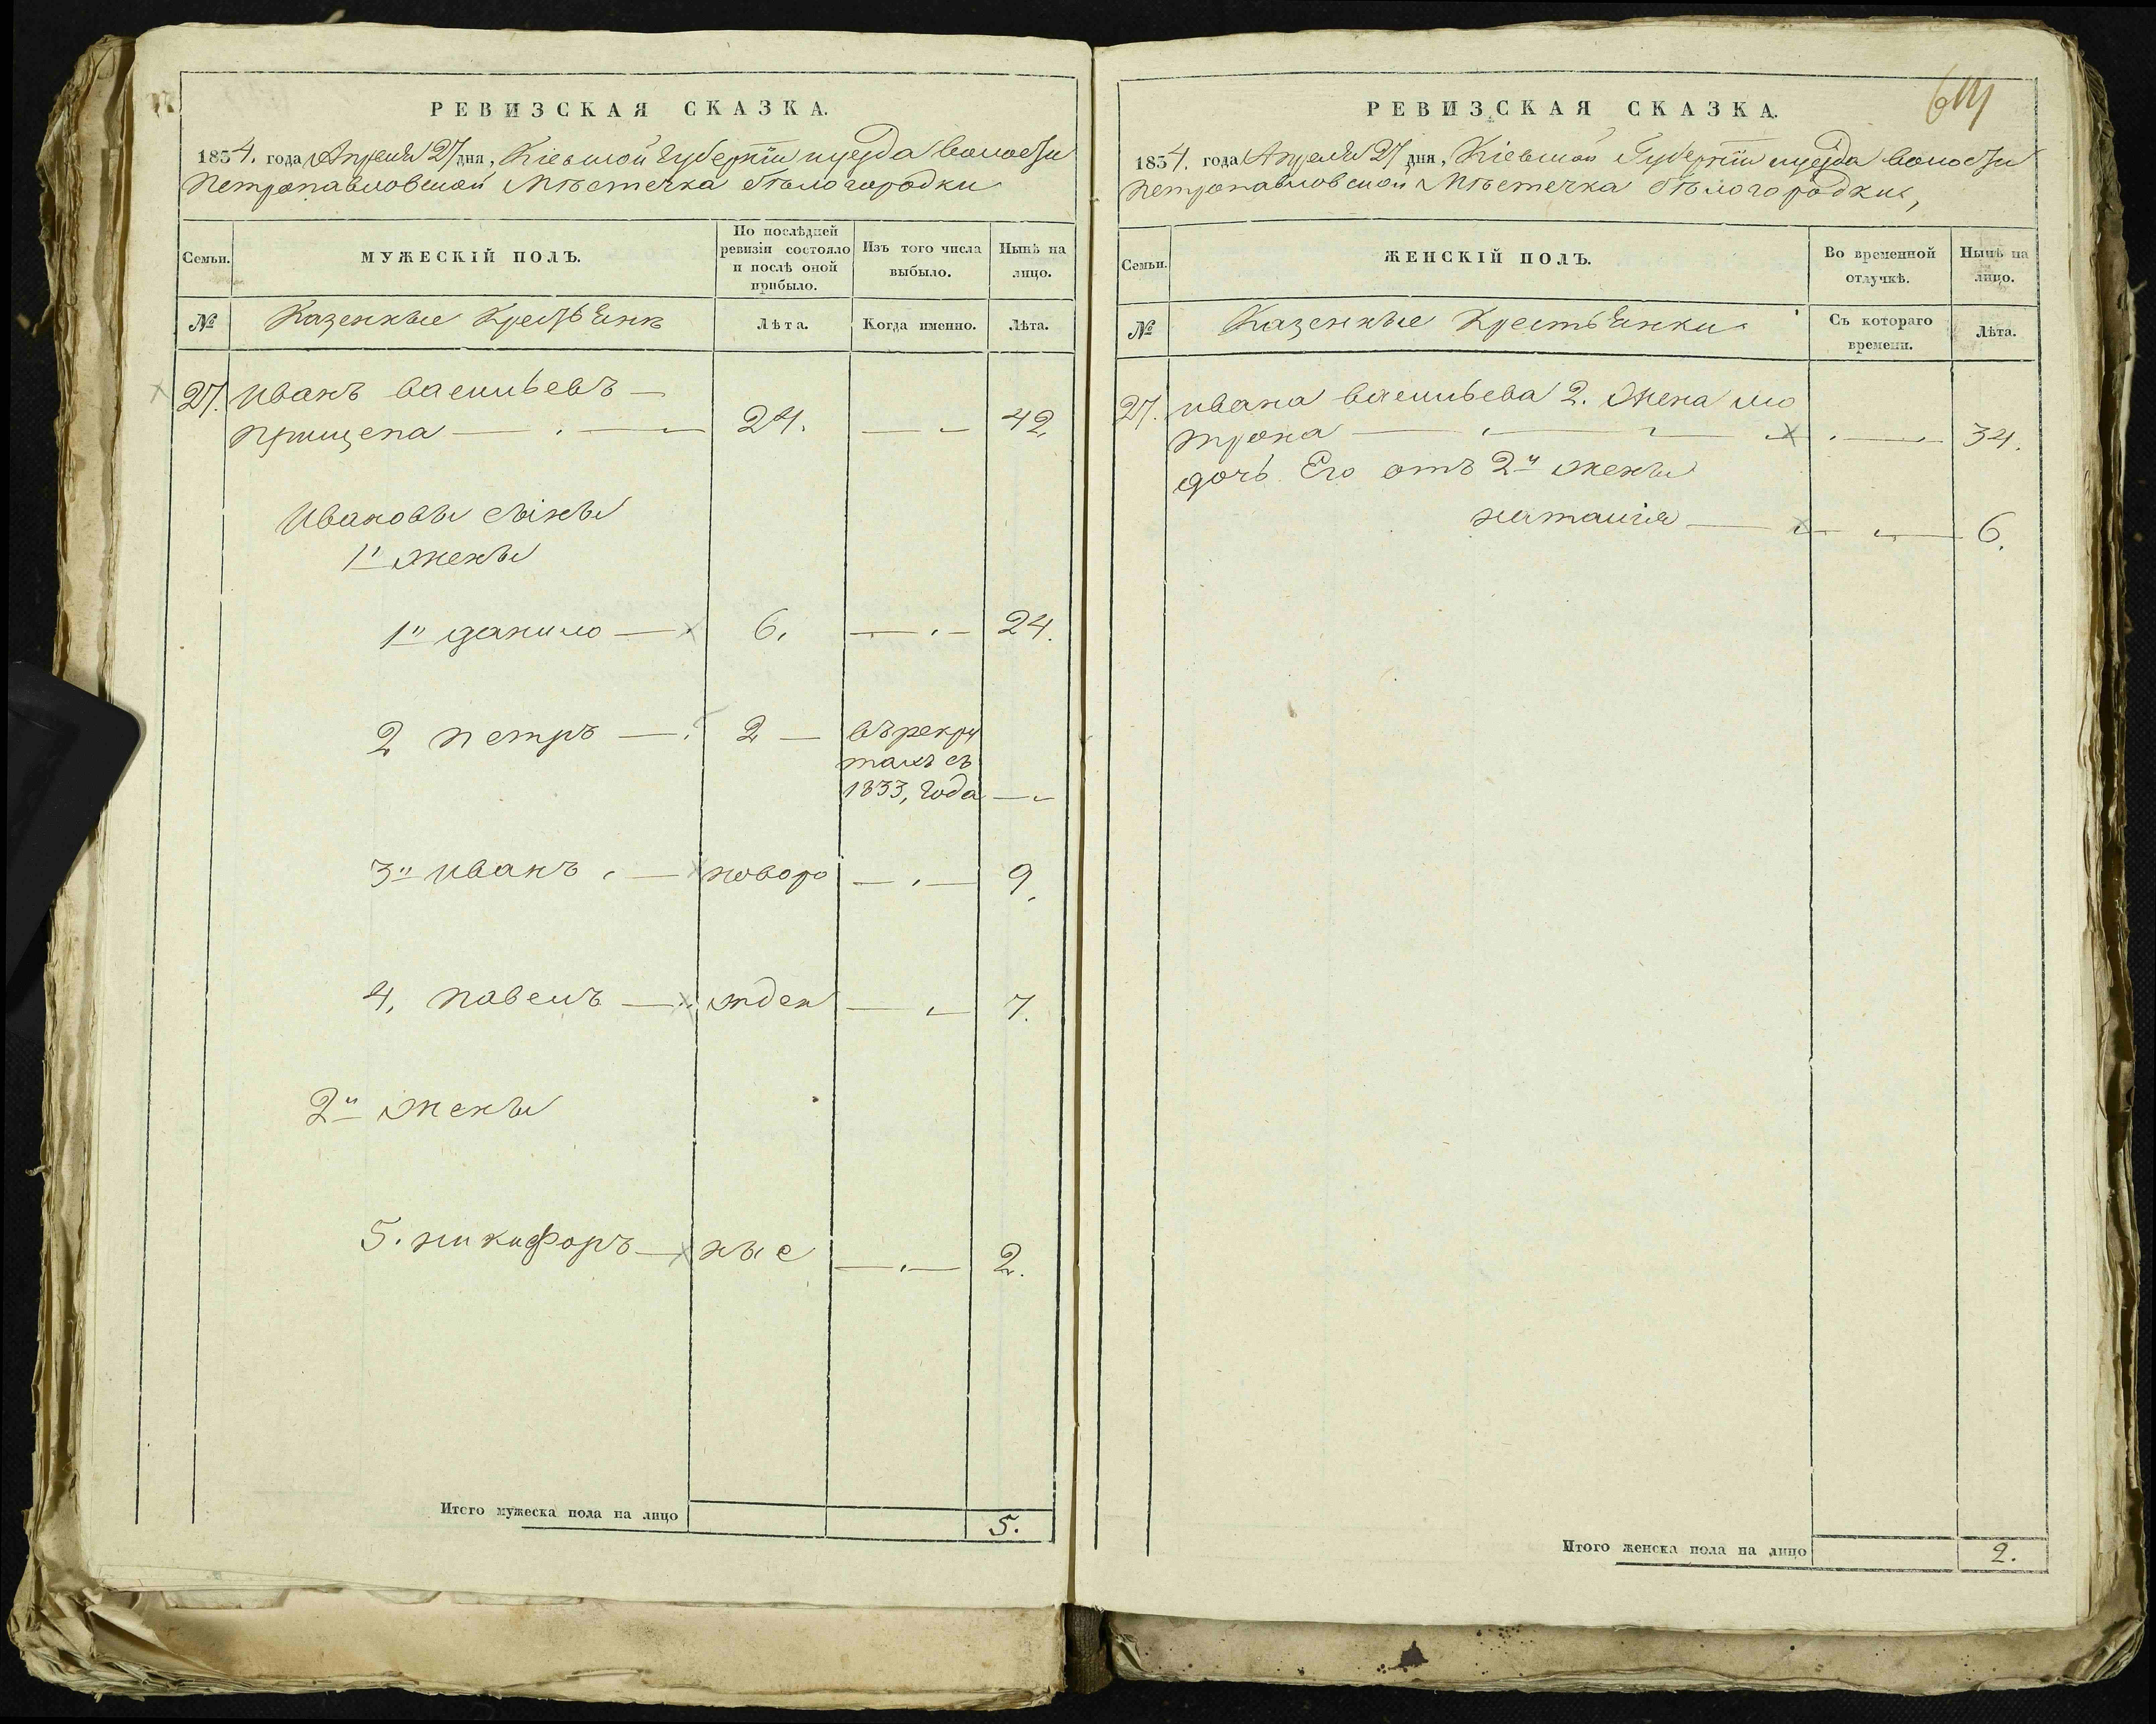 РЕВИЗСКАЯ СКАЗКА.
1834. года Апреля 27 дня, Кіевской Губерніи и уезда волости
Петропавловской Мѣстечка бѣлогородки
Семьи.
МУЖЕСКІЙ ПОЛЪ.
По послѣдней ревизіи состояло и послѣ оной прибыло.
Изъ того числа выбыло.
Нынѣ на лицо.
№
Казенные Крестьяне
Лѣта.
Когда именно.
Лѣта.
27. иванъ васильевъ —
прищепа — 24. — 42.
Ивановы сыны
1й жены
1й данило — 6. — 24.
2 петръ — 2 — въ рекру
тахъ съ
1833, года —
3й иванъ — новоро — 9.
4, павелъ — жден — 7.
2й жены
5. никифоръ — ные — 2.
Итого мужеска пола на лицо 5.
614
РЕВИЗСКАЯ СКАЗКА.
1834. года Апреля 27 дня, Кіевской Губерніи и уезда волости
петропавловской Мѣстечка бѣлогородки,
Семьи.
ЖЕНСКІЙ ПОЛЪ.
Во временной отлучкѣ.
Нынѣ на лицо.
№
Казенные Крестьянки
Съ котораго времени.
Лѣта.
27. ивана васильева 2. жена мо
трона — 34.
дочь Его отъ 2й жены
наталія — 6.
Итого женска пола на лицо 2.